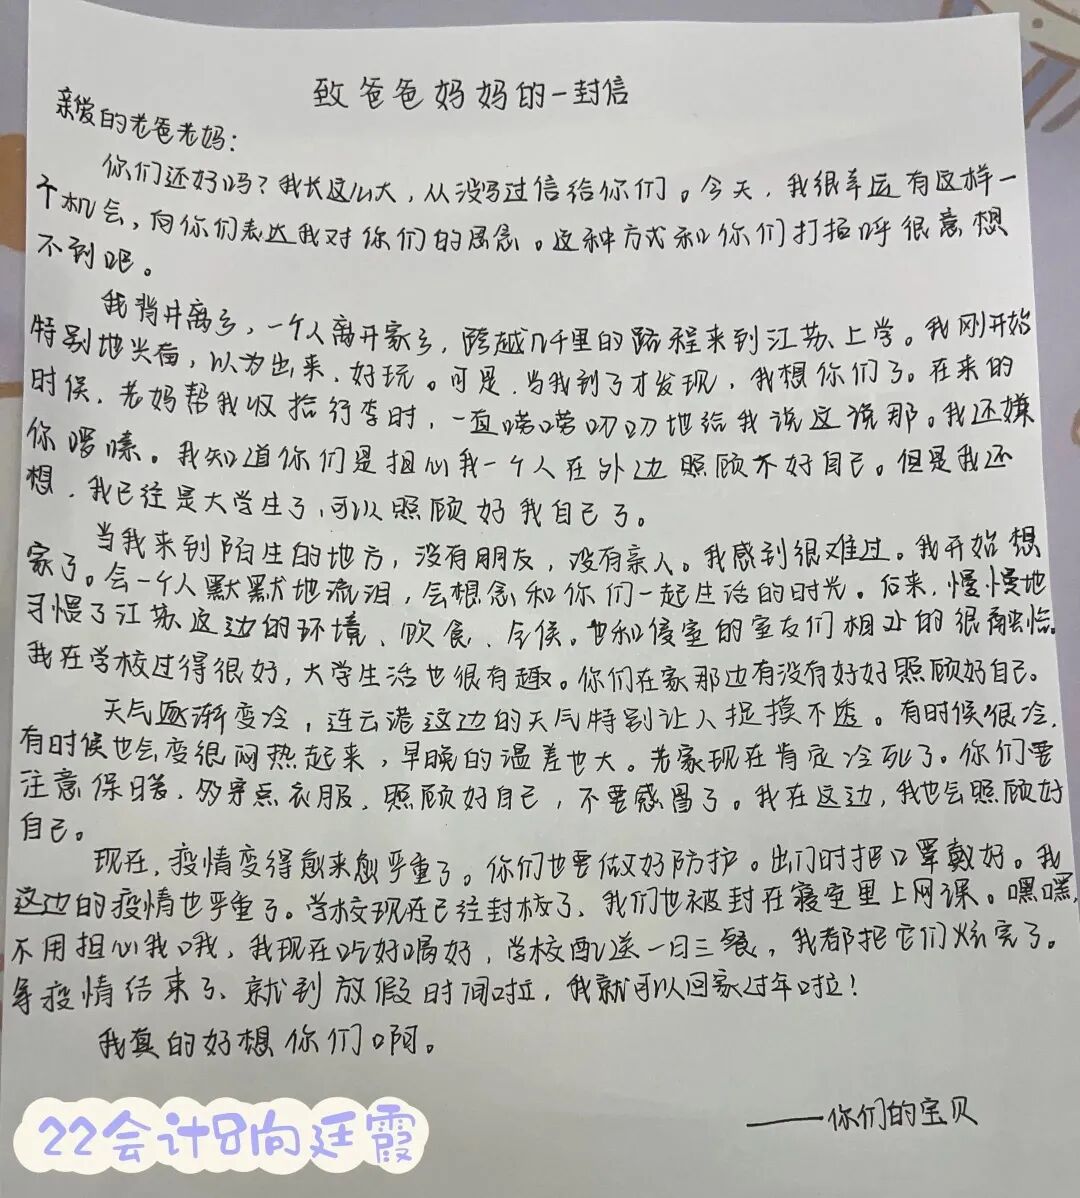 致爸爸妈妈的一封信
亲爱的老爸老妈：
你们还好吗？我长这么大，从没写过信给你们。今天，我很幸运有这样一
个机会，向你们表达我对你们的思念。这种方式和你们打招呼很意想
不到吧。
我背井离乡，一个人离开家乡，跨越几千里的路程来到江苏上学。我刚开始
特别地兴奋，以为出来，好玩。可是，当我到了才发现，我想你们了。在来的
时候，老妈帮我收拾行李时，一直唠唠叨叨地给我说这说那。我还嫌
你啰嗦。我知道你们是担心我一个人在外边照顾不好自己。但是我还
想，我已经是大学生了，可以照顾好我自己了。
当我来到陌生的地方，没有朋友，没有亲人。我感到很难过。我开始想
家了。会一个人默默地流泪，会想念和你们一起生活的时光。后来，慢慢地
习惯了江苏这边的环境、饮食、气候。也和寝室的室友们相处的很融恰。
我在学校过得很好，大学生活也很有趣。你们在家那边有没有好好照顾好自己。
天气逐渐变冷，连云港这边的天气特别让人捉摸不透。有时候很冷，
有时候也会变很闷热起来，早晚的温差也大。老家现在肯定冷死了。你们要
注意保暖，多穿点衣服，照顾好自己，不要感冒了。我在这边，我也会照顾好
自己。
现在，疫情变得愈来愈严重了。你们也要做好防护。出门时把口罩戴好。我
这边的疫情也严重了。学校现在已经封校了，我们也被封在寝室里上网课。嘿嘿，
不用担心我哦，我现在吃好喝好，学校配送一日三餐，我都把它们炫完了。
等疫情结束了、就到放假时间啦，我就可以回家过年啦！
我真的好想你们啊。
——你们的宝贝
22会计8向廷霞